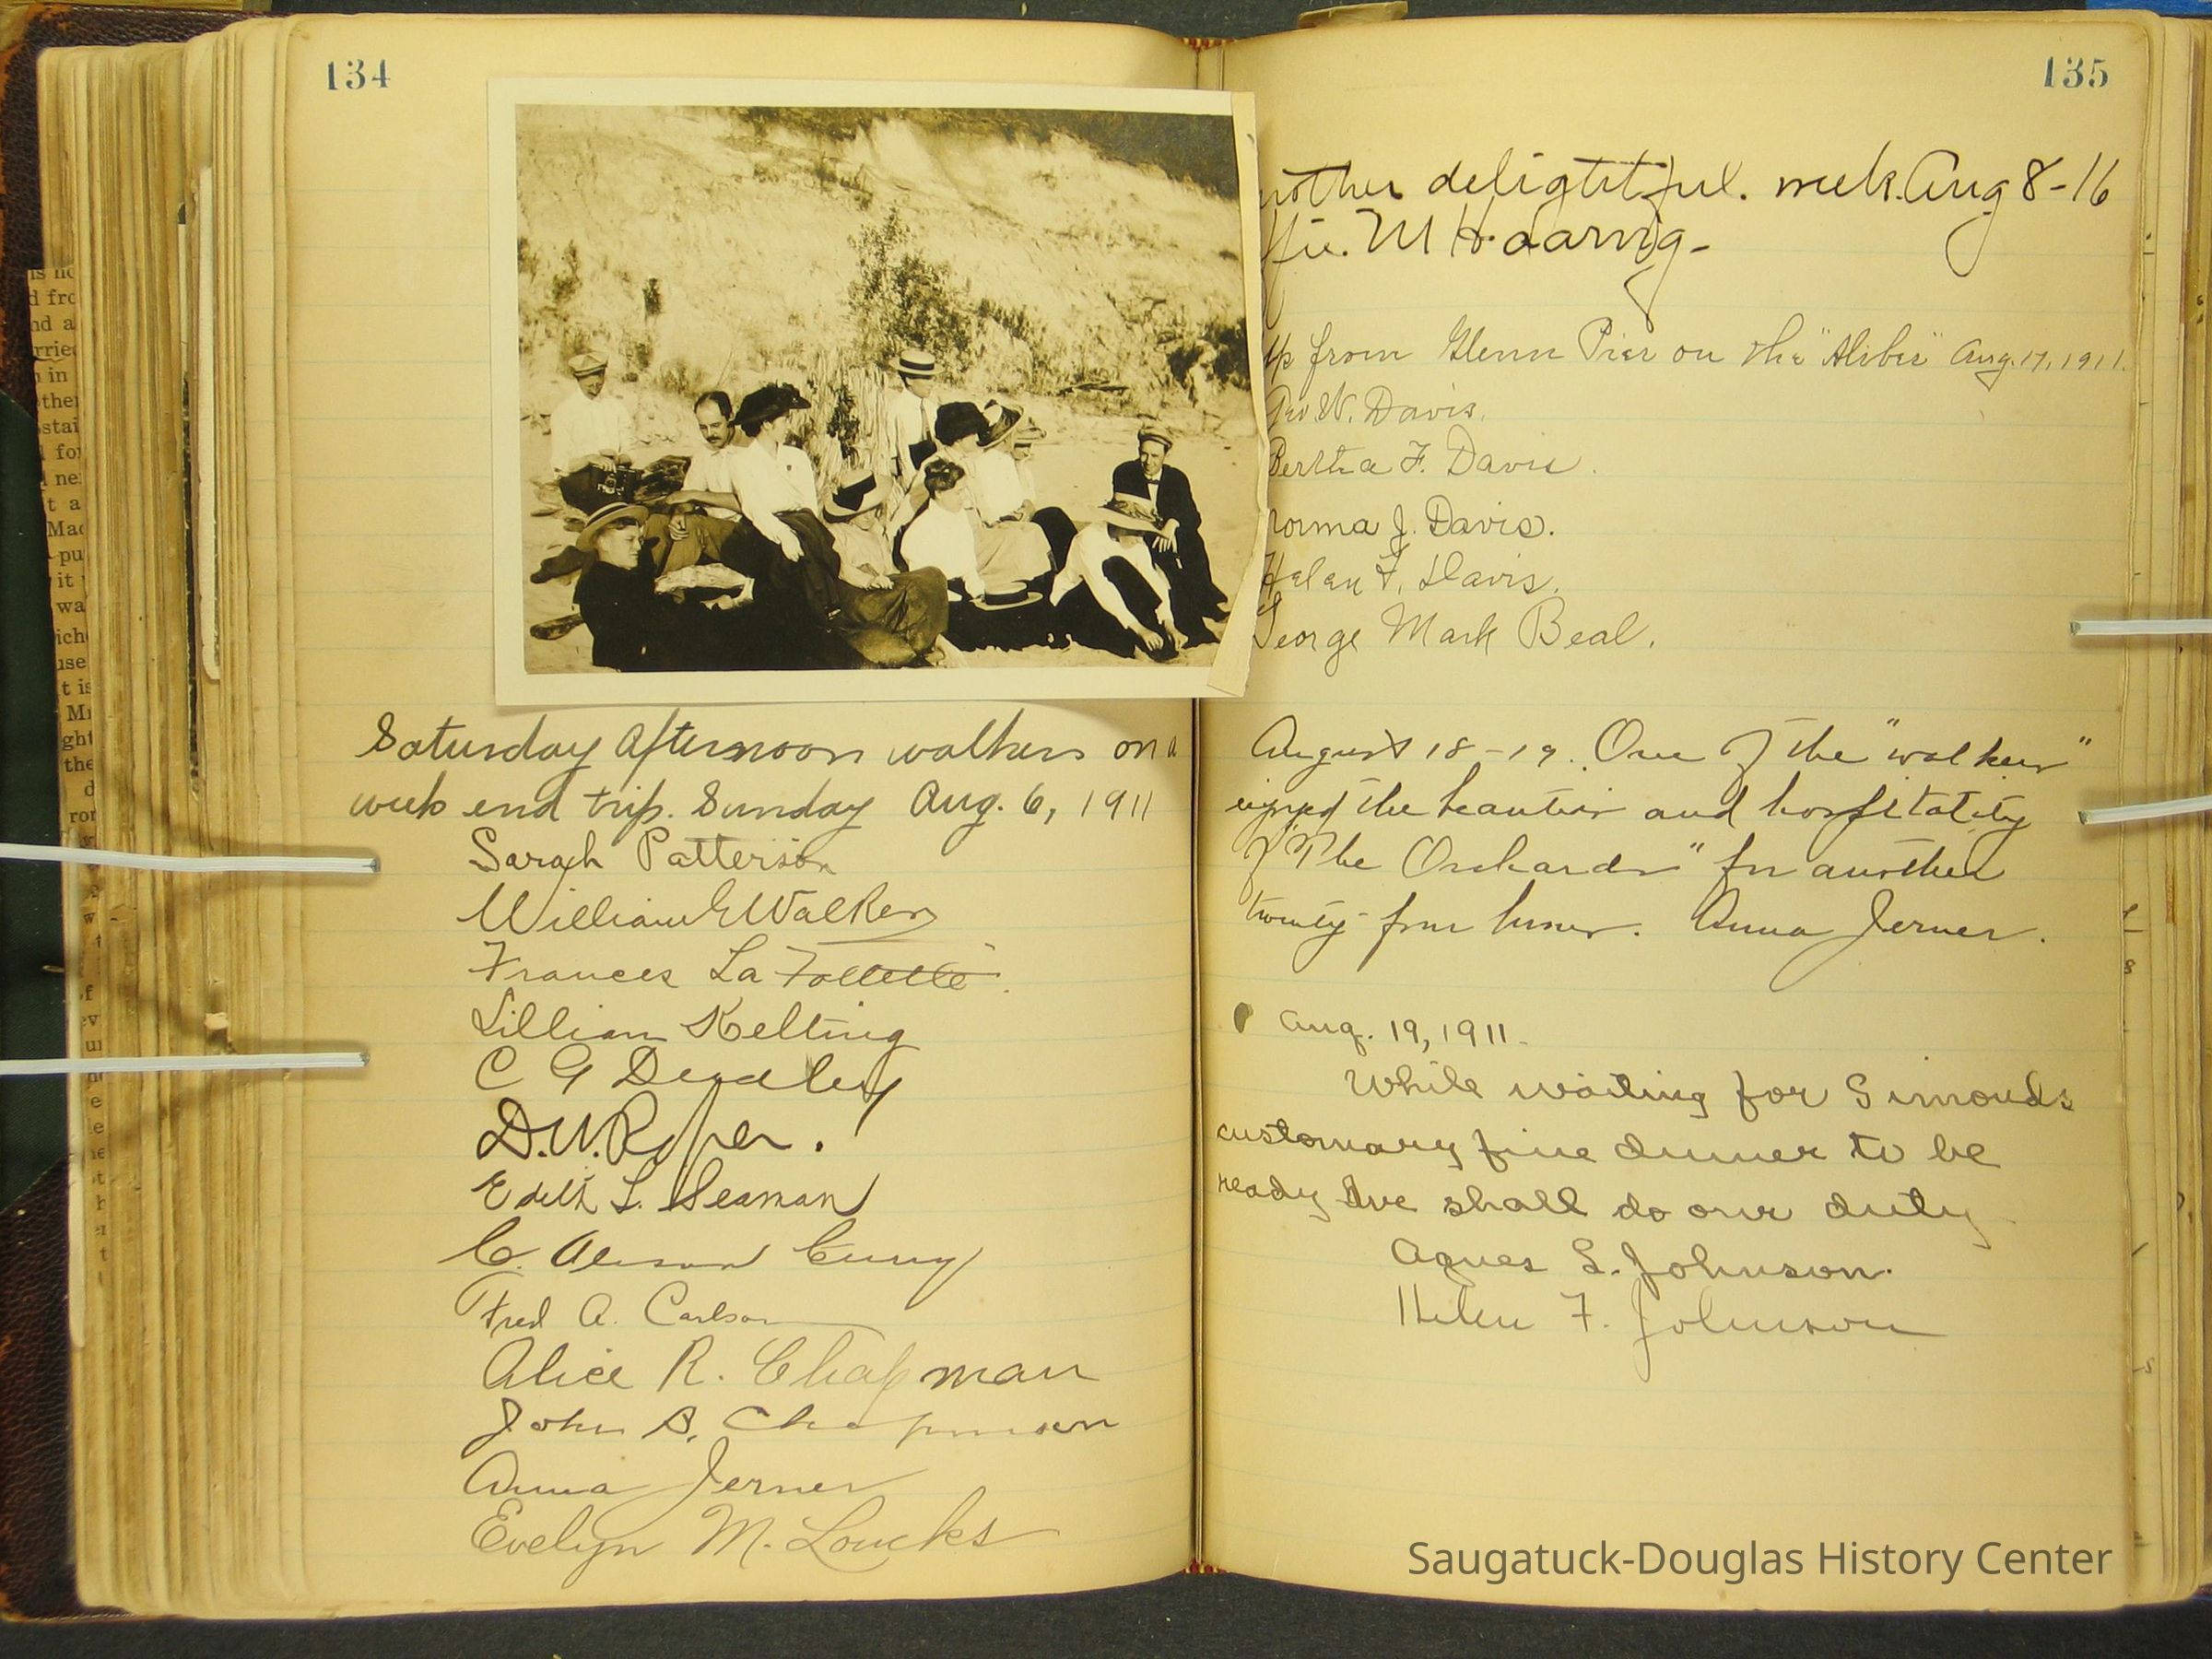 134
Saturday afternoon walkers on a
week end trip. Sunday Aug. 6, 1911
Sarah Patterson
William E Walker
Frances La Follette.
Lillian Kelting
C G
D. W. Roper.
Edith L. Seaman
C.
Fred A. Carlson
Alice R. Chapman
John B. Chapman
Anna Jerner
Evelyn M. Loucks
135
nother delightful. week. Aug 8-16
M
Up from Glenn Pier on the " " Aug. 17, 1911.
Geo W. Davis.
Bertha F. Davis.
Norma J. Davis.
Helen F. Davis.
George Mark Beal.
August 18-19. One of the "walkers"
enjoyed the beauties and hospitality
of "The Orchards" for another
twenty-four hours. Anna Jerner.
Aug. 19, 1911.
While waiting for Simonds
customary fine dinner to be
ready we shall do our duty
Agnes L. Johnson.
Helen F. Johnson
Saugatuck-Douglas History Center